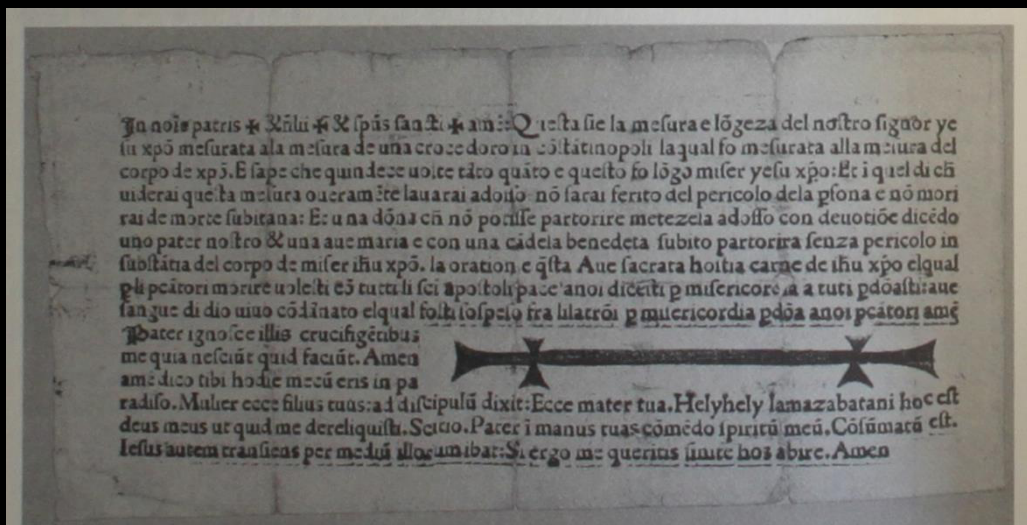 In noīe patris ✠ & filii ✠ & spūs sancti ✠ amē: Questa sie la mesura e lōgeza del nostro signor ye
su xpō mesurata ala mesura de una croce doro in cōstātinopoli laqual fo mesurata alla mesura del
corpo de xpō. E sape che quindece uolte tāto quāto e questo fo lōgo miser yesu xpo: Et i quel di cħ
uiderai questa mesura oueramēte lauarai adosso nō sarai ferito del pericolo dela ꝑsona e nō mori
rai de morte subitana: Et una dōna cħ nō potesse partorire metezela adosso con deuotiōe dicēdo
uno pater nostro & una aue maria e con una cādela benedeta subito partorira senza pericolo in
substātia del corpo de miser ihu xpō. la oration e q̄sta Aue sacrata hostia carne de ihu xpo elqual
ꝑ li pcātori morire uolesti cō tutti li sci apostoli pace anoi diceiti ꝑ misericordia a tuti ꝑdōasti: aue
sangue di dio uiuo cōdānato elqual fosti sospeso fra li latrōi ꝑ misericordia ꝑdōa anoi pcātori amē
Pater ignosce illis crucifigētibus
me quia nesciūt quid faciūt. Amen
amē dico tibi hodie mecū eris in pa
radiso. Mulier ecce filius tuus: ad discipulū dixit: Ecce mater tua. Helyhely lamazabatani hoc est
deus meus ut quid me dereliquisti. Scitio. Pater ī manus tuas cōmēdo spiritū meū. Cōsūmatū est.
Iesus autem transiens per mediū illorum ibat: Si ergo me queritis sinite hos abire. Amen